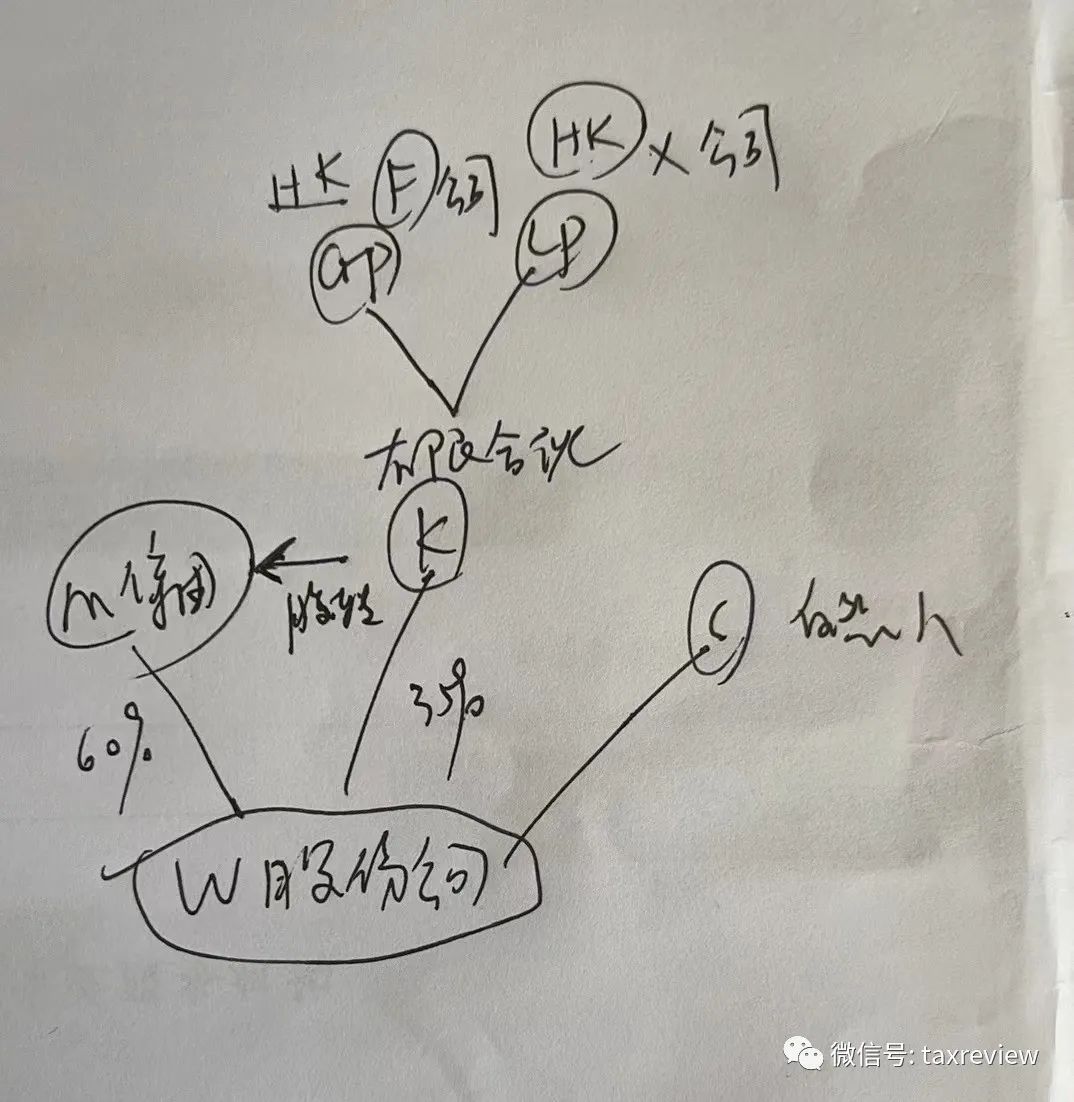 HK F公司
HK X公司
GP
LP
有限合伙
K
M集团
股权
C 自然人
60%
35%
W股份公司
微信号: taxreview